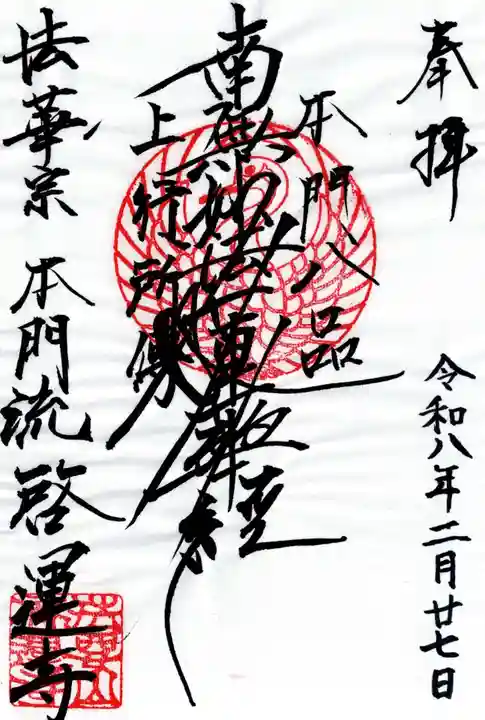 奉拝
令和八年二月廿七日
本門八品
南無妙法蓮華経
上行所傳
法華宗 本門流 啓運寺